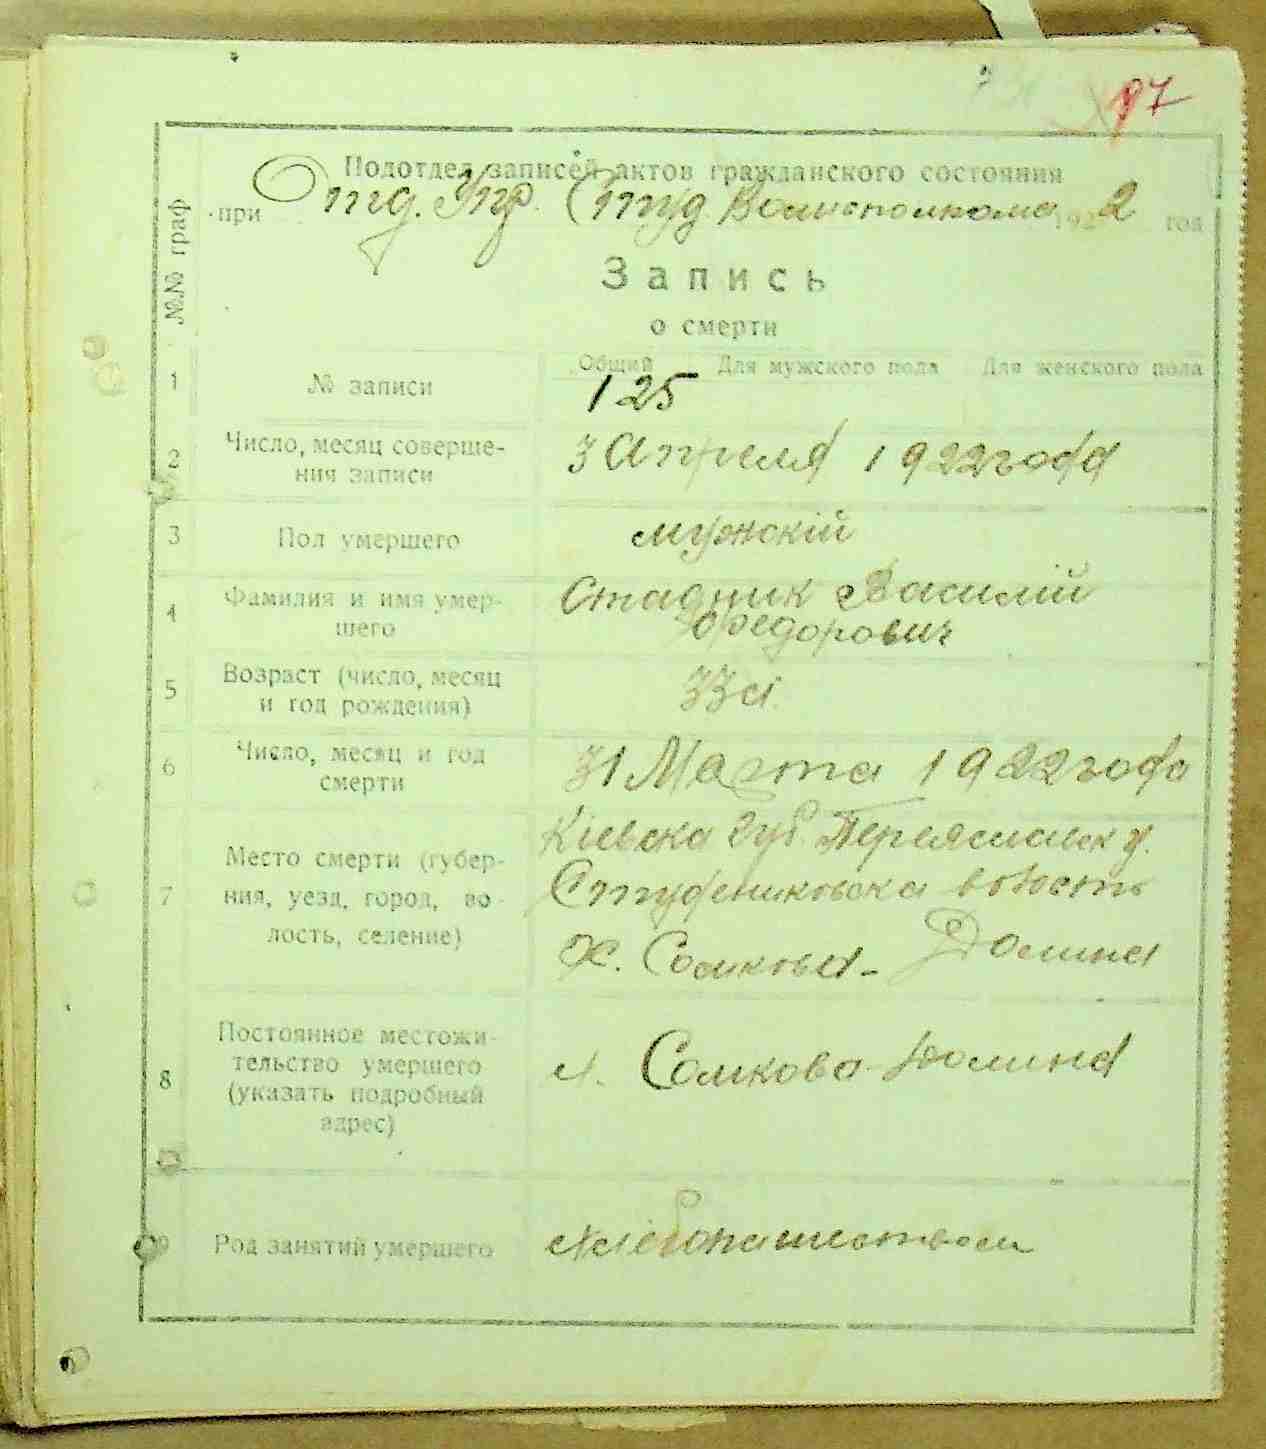 97
Подотдел записей актов гражданского состояния
при Отд. Упр. Студ. Волисполкома 1922 год
№№ граф
Запись
о смерти
Общий Для мужского пола Для женского пола
1 № записи 125
2 Число, месяц соверше-
ния записи
3 Апреля 1922 года
3 Пол умершего мужскій
4 Фамилия и имя умер-
шего
Стадник Василій
Федорович
5 Возраст (число, месяц
и год рождения)
33 л.
6 Число, месяц и год
смерти
31 Марта 1922 года
7 Место смерти (губер-
ния, уезд, город, во-
лость, селение)
Кіевска губ. Переяславск у.
Студениковска волость
х. Сомкова-Долина
8 Постоянное местожи-
тельство умершего
(указать подробный
адрес)
х. Сомкова-Долина
9 Род занятий умершего хлебопашеством